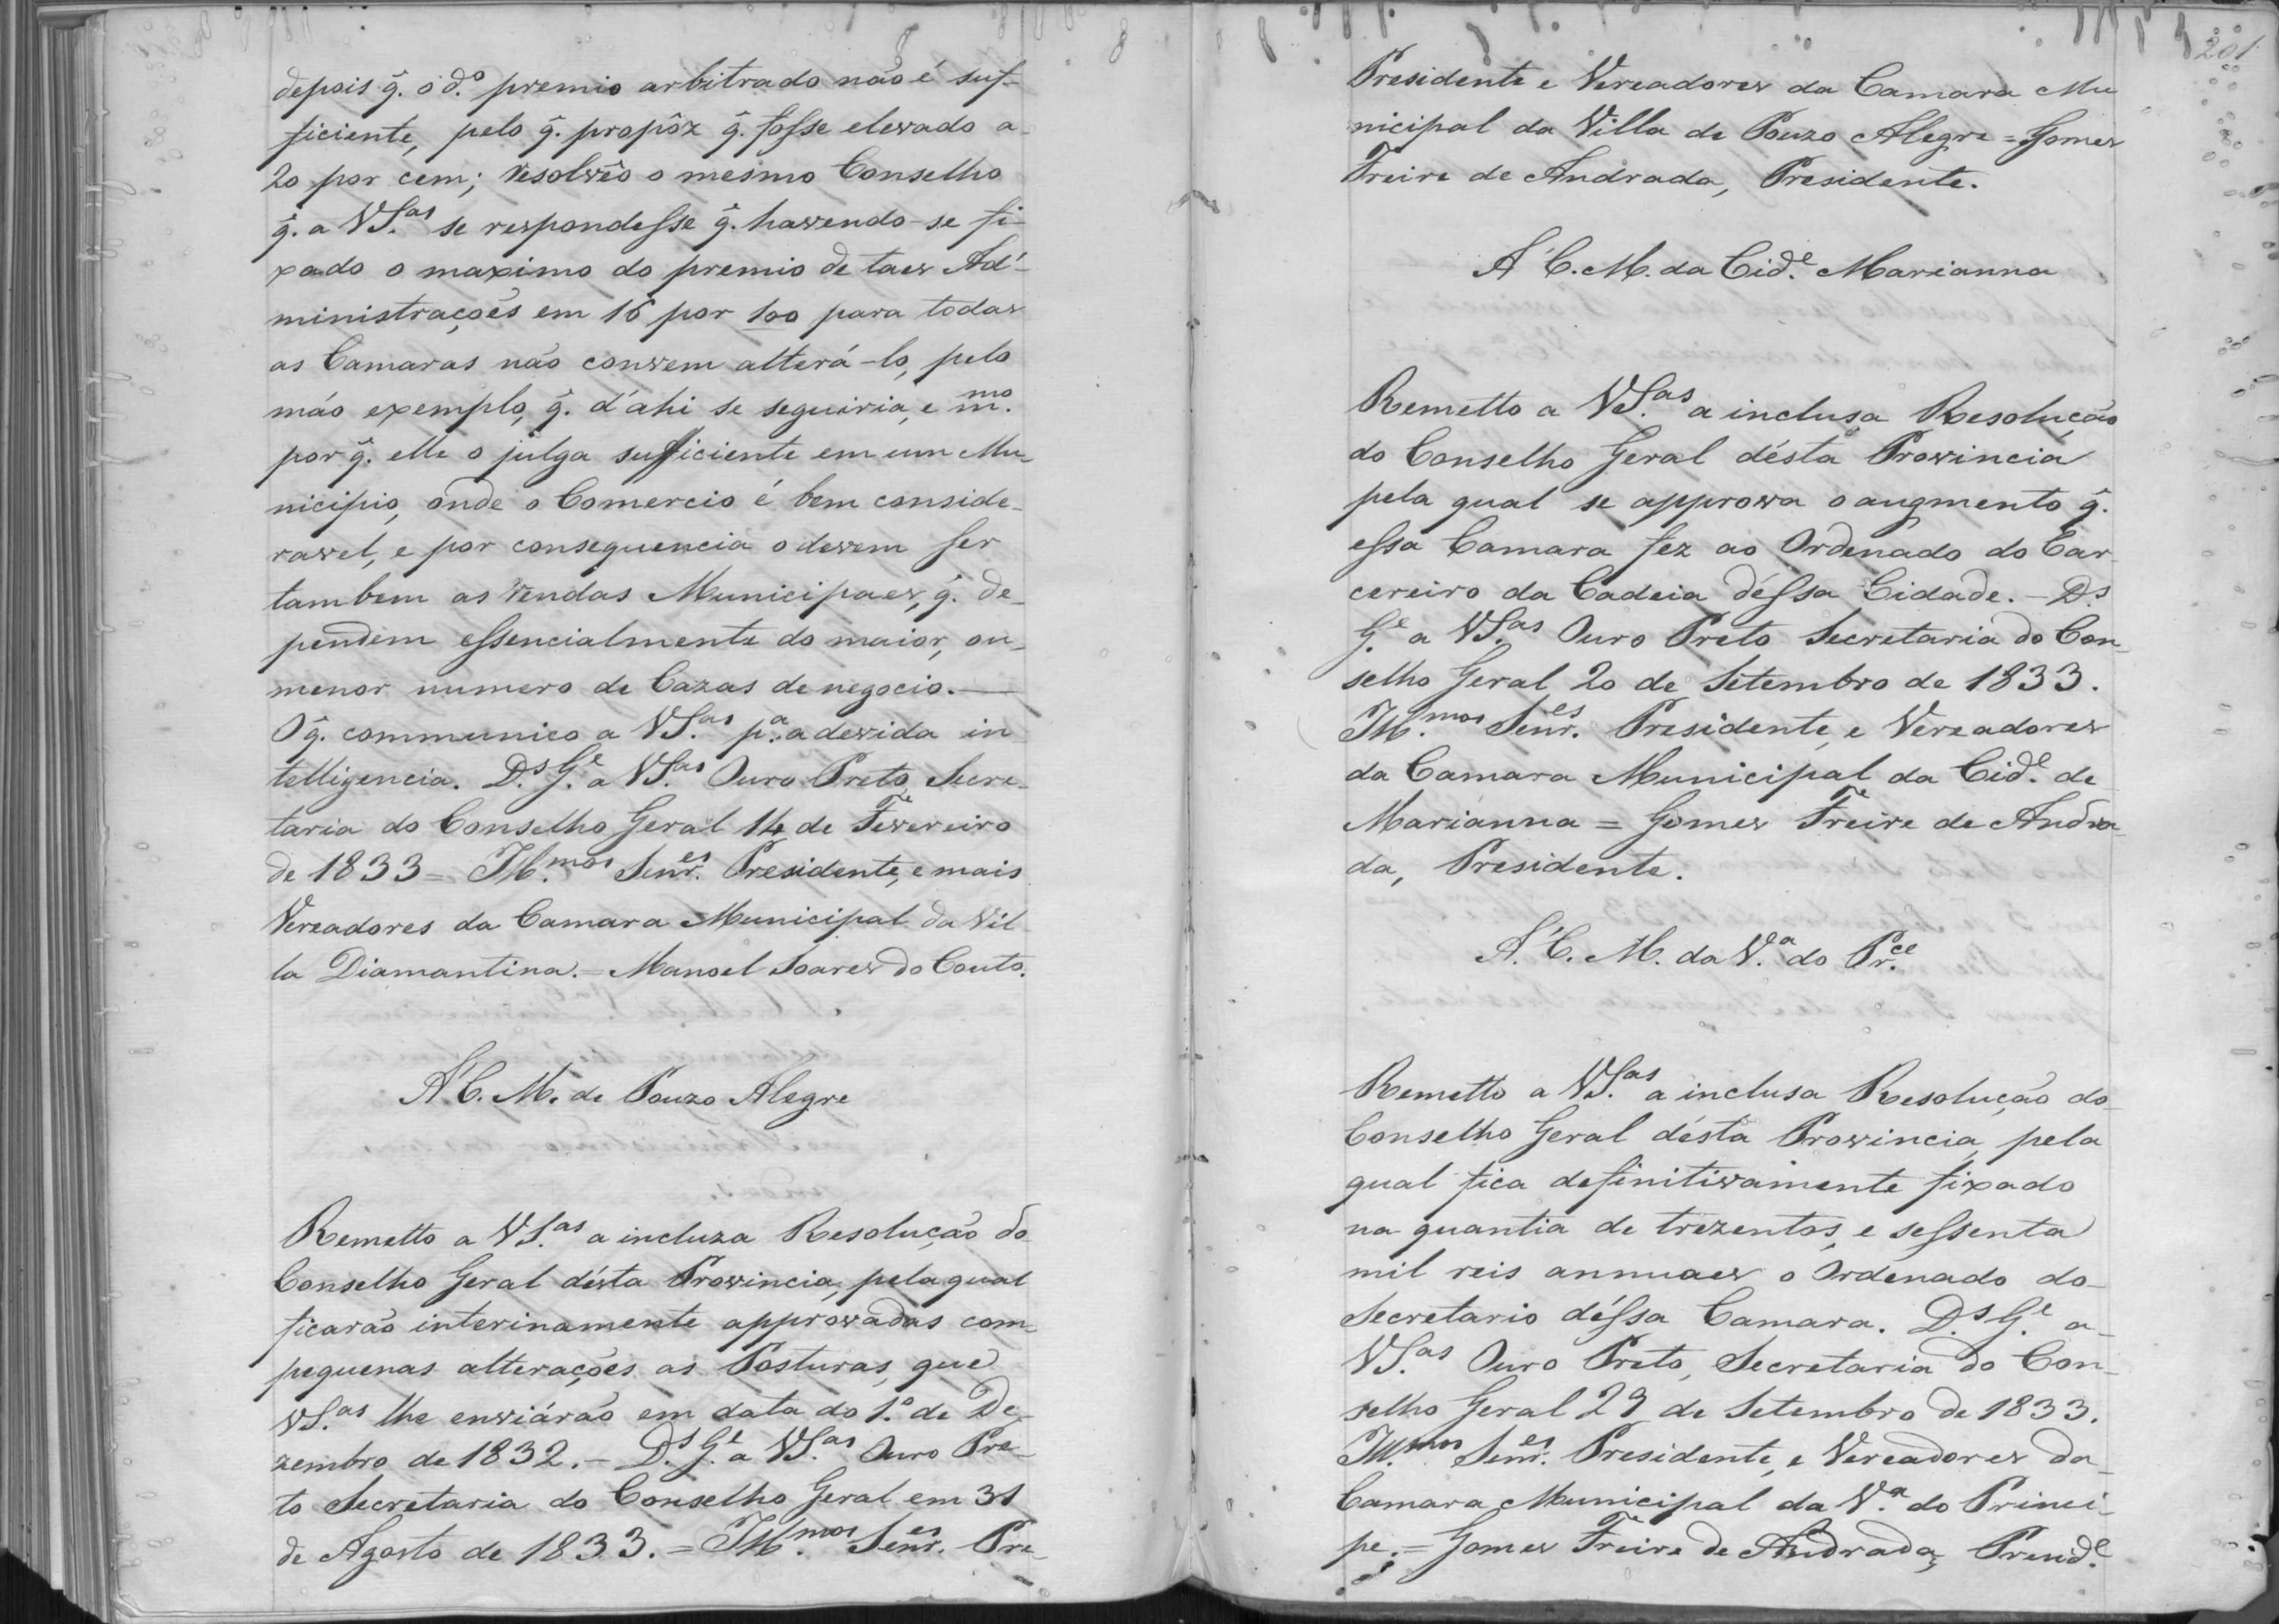 depois q̃. o d.º premio arbitrado não é suf-
ficiente, pelo q̃. propôz q̃. fosse elevado a
20 por cem; resolvêo o mesmo Conselho
q̃. a VS.as se respondesse q̃. havendo-se fi-
xado o maximo do premio de taes Ad-
ministrações em 16 por 100 para todas
as Camaras não convem alterá-lo, pelo
máo exemplo, q̃. d'ahi se seguiria, e m.mo
por q̃. elle o julga sufficiente em um Mu-
nicipio, onde o Comercio é bem conside-
ravel, e por consequencia o devem ser
tambem as rendas Municipaes, q̃. de-
pendem essencialmente do maior, ou
menor numero de Cazas de negocio. —
O q̃. communico a VS.as p.a a devida in
telligencia. D.s G.e a VS.as Ouro Preto, Secre-
taria do Conselho Geral 14 de Fevereiro
de 1833 = Ill.mos Senr.es Presidente, e mais
Vereadores da Camara Municipal da Vil
la Diamantina. = Manoel Soares do Couto.
A' C. M. de Pouzo Alegre
Remetto a VS.as a incluza Resolução do
Conselho Geral désta Provincia, pela qual
ficarão interinamente approvadas com
pequenas alterações as Posturas, que
VS.as lhe enviárão em data do 1.º de De-
zembro de 1832. — D.s G.e a VS.as Ouro Pre-
to Secretaria do Conselho Geral em 31
de Agosto de 1833. = Ill.mos Senr.es Pre-
201
Presidente e Vereadores da Camara Mu
nicipal da Villa de Pouzo Alegre = Gomes
Freire de Andrada, Presidente.
A' C. M. da Cid.e Marianna
Remetto a VS.as a inclusa Resolução
do Conselho Geral désta Provincia
pela qual se approva o augmento q̃.
essa Camara fez ao Ordenado do Car
cereiro da Cadeia déssa Cidade. — D.s
G.e a VS.as Ouro Preto Secretaria do Con-
selho Geral 20 de Setembro de 1833.
Ill.mos Senr.es Presidente, e Vereadores
da Camara Municipal da Cid.e de
Marianna = Gomes Freire de Andra
da, Presidente.
A' C. M. da V.a do Pr.ce
Remetto a VS.as a inclusa Resolução do
Conselho Geral désta Provincia, pela
qual fica definitivamente fixado
na quantia de trezentos, e sessenta
mil reis annuaes o Ordenado do
Secretario déssa Camara. D.s G.e a
VS.as Ouro Preto, Secretaria do Con-
selho Geral 23 de Setembro de 1833.
Ill.mos Senr.es Presidente, e Vereadores da
Camara Municipal da V.a do Princi-
pe. = Gomes Freire de Andrada, Presid.e